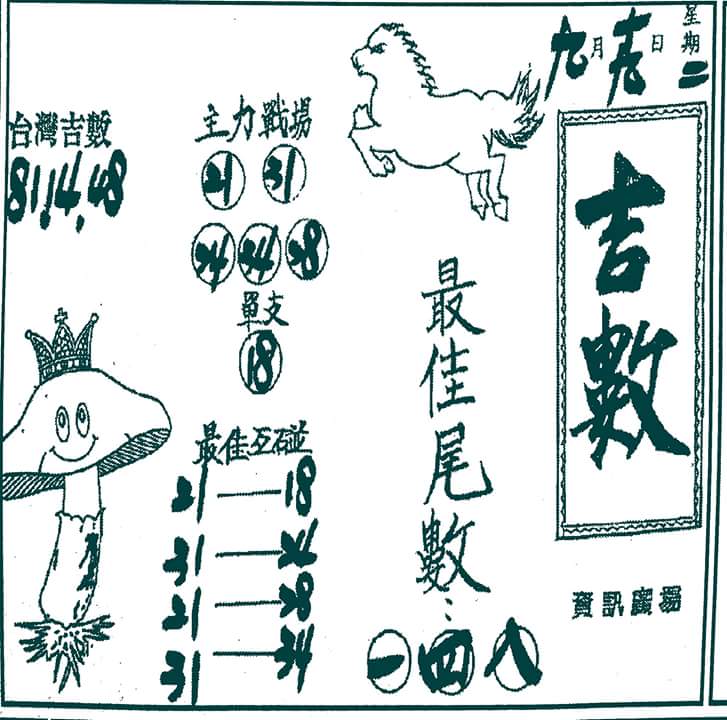 九月十九日
星期二
吉數
資訊廣場
最佳尾數：
一 四 八
主力戰場
21 31
24 34 28
單支
18
最佳互碰
21——18
31——24
21——28
31——34
台灣吉數